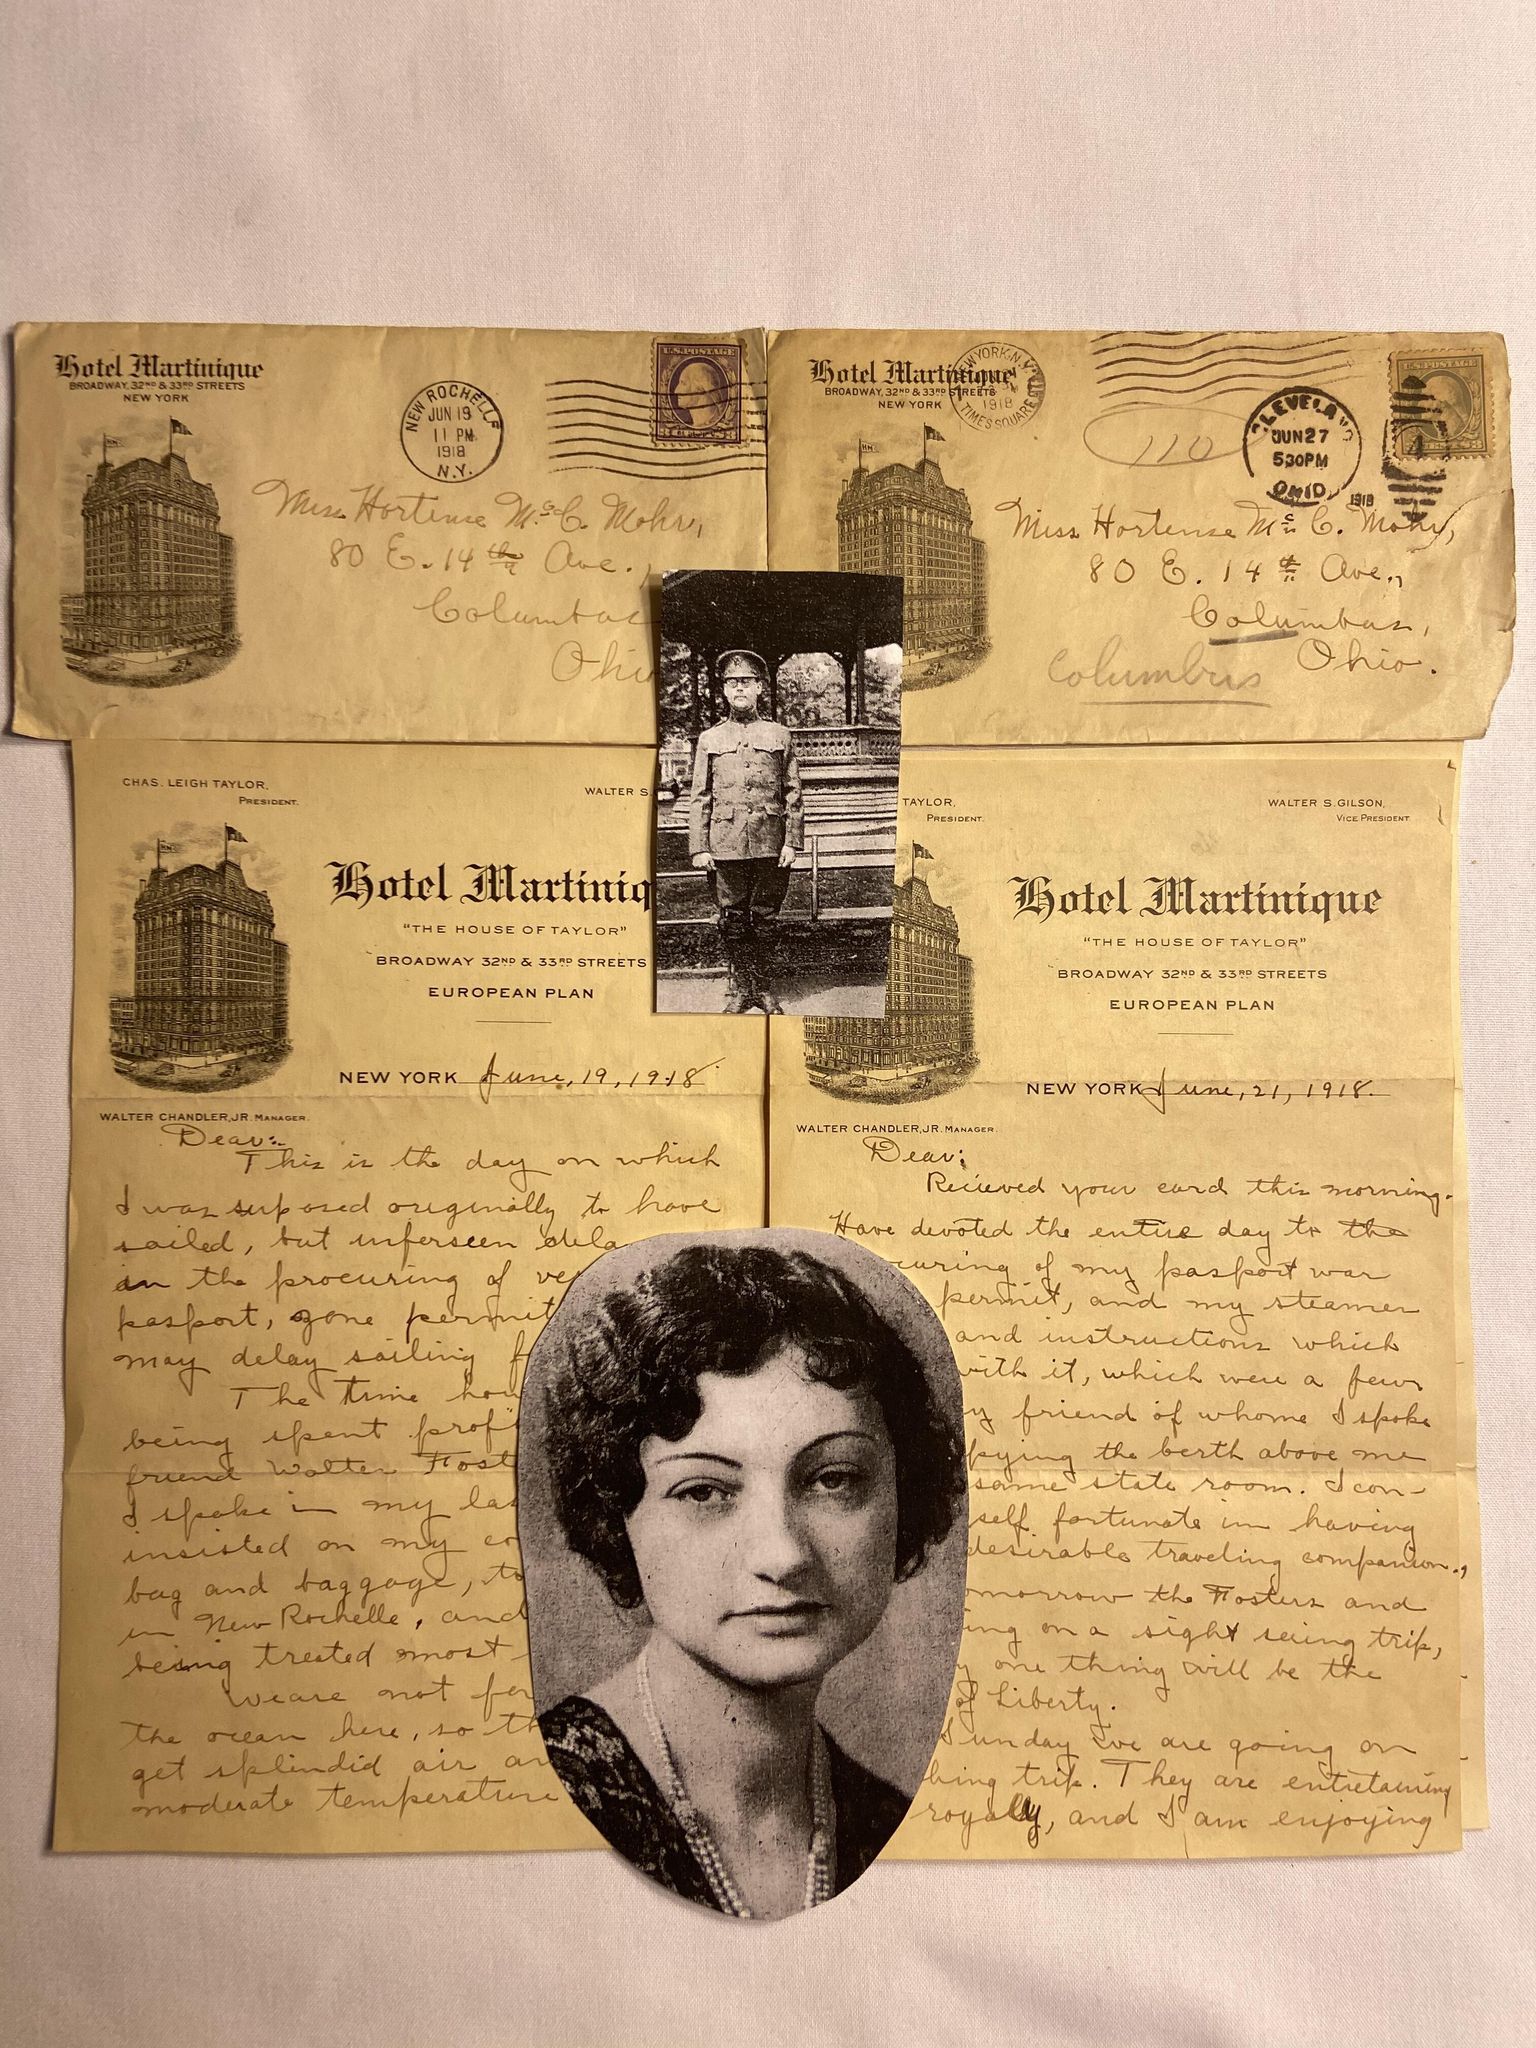 Hotel Martinique
BROADWAY, 32ND & 33RD STREETS
NEW YORK
NEW ROCHELLE
JUN 19
11 PM
1918
N.Y.
U.S. POSTAGE
Miss Hortense Mc C. Mohr,
80 E. 14th Ave.,
Columbus
Ohio
Hotel Martinique
BROADWAY, 32ND & 33RD STREETS
NEW YORK
NEW YORK, N.Y.
1918
TIMES SQUARE
110
CLEVELAND
JUN 27
530PM
OHIO
1918
Miss Hortense Mc C. Mohr,
80 E. 14th Ave.,
Columbus,
Ohio.
Columbus
CHAS. LEIGH TAYLOR,
PRESIDENT.
WALTER S.
Hotel Martiniq
"THE HOUSE OF TAYLOR"
BROADWAY 32ND & 33RD STREETS
EUROPEAN PLAN
NEW YORK June, 19, 1918
WALTER CHANDLER, JR. MANAGER.
Dear:
This is the day on which
I was suposed originally to have
sailed, but unferseen dela
in the procuring of
pasport, zone permit
may delay sailing
The time
being spent prof
friend Walter Fost
I spoke in my las
insisted on my co
bag and baggage, to
in New Rochelle, and
being treated most
We are not
the ocean here, so th
get splendid air an
moderate temperature
TAYLOR,
PRESIDENT.
WALTER S. GILSON,
VICE PRESIDENT
Hotel Martinique
"THE HOUSE OF TAYLOR"
BROADWAY 32ND & 33RD STREETS
EUROPEAN PLAN
NEW YORK June, 21, 1918.
WALTER CHANDLER, JR. MANAGER.
Dear:
Recieved your card this morning.
Have devoted the entire day to the
curing of my pasport war
permit, and my steamer
and instructions which
with it, which were a few
y friend of whome I spoke
pying the berth above me
same state room. I con-
self fortunate in having
desirable traveling companion.,
omorrow the Fosters and
ing on a sight seeing trip,
y one thing will be the
of Liberty.
Sunday we are going on
hing trip. They are entertaining
royally, and I am enjoying